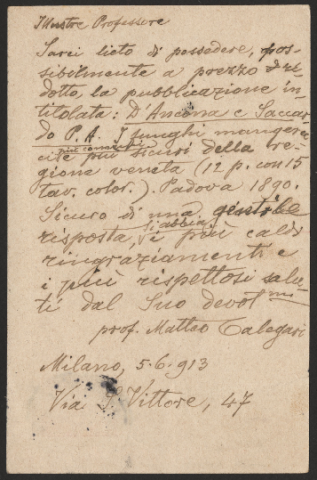 Illustre Professore
Sarei lieto di possedere, pos-
sibilmente a prezzo ri-
dotto, la pubblicazione in-
titolata: D'Ancona e Saccar-
do P. A. I funghi mangerec-
più comuni e
ci e più sicuri della re-
gione veneta (12 p. con 15
tav. color.). Padova 1890.
Sicuro di una gentile
risposta, si abbia i più caldi
ringraziamenti e
i più rispettosi salu-
ti dal Suo devot.mo
prof. Matteo Calegari
Milano, 5.6.913
Via S. Vittore, 47